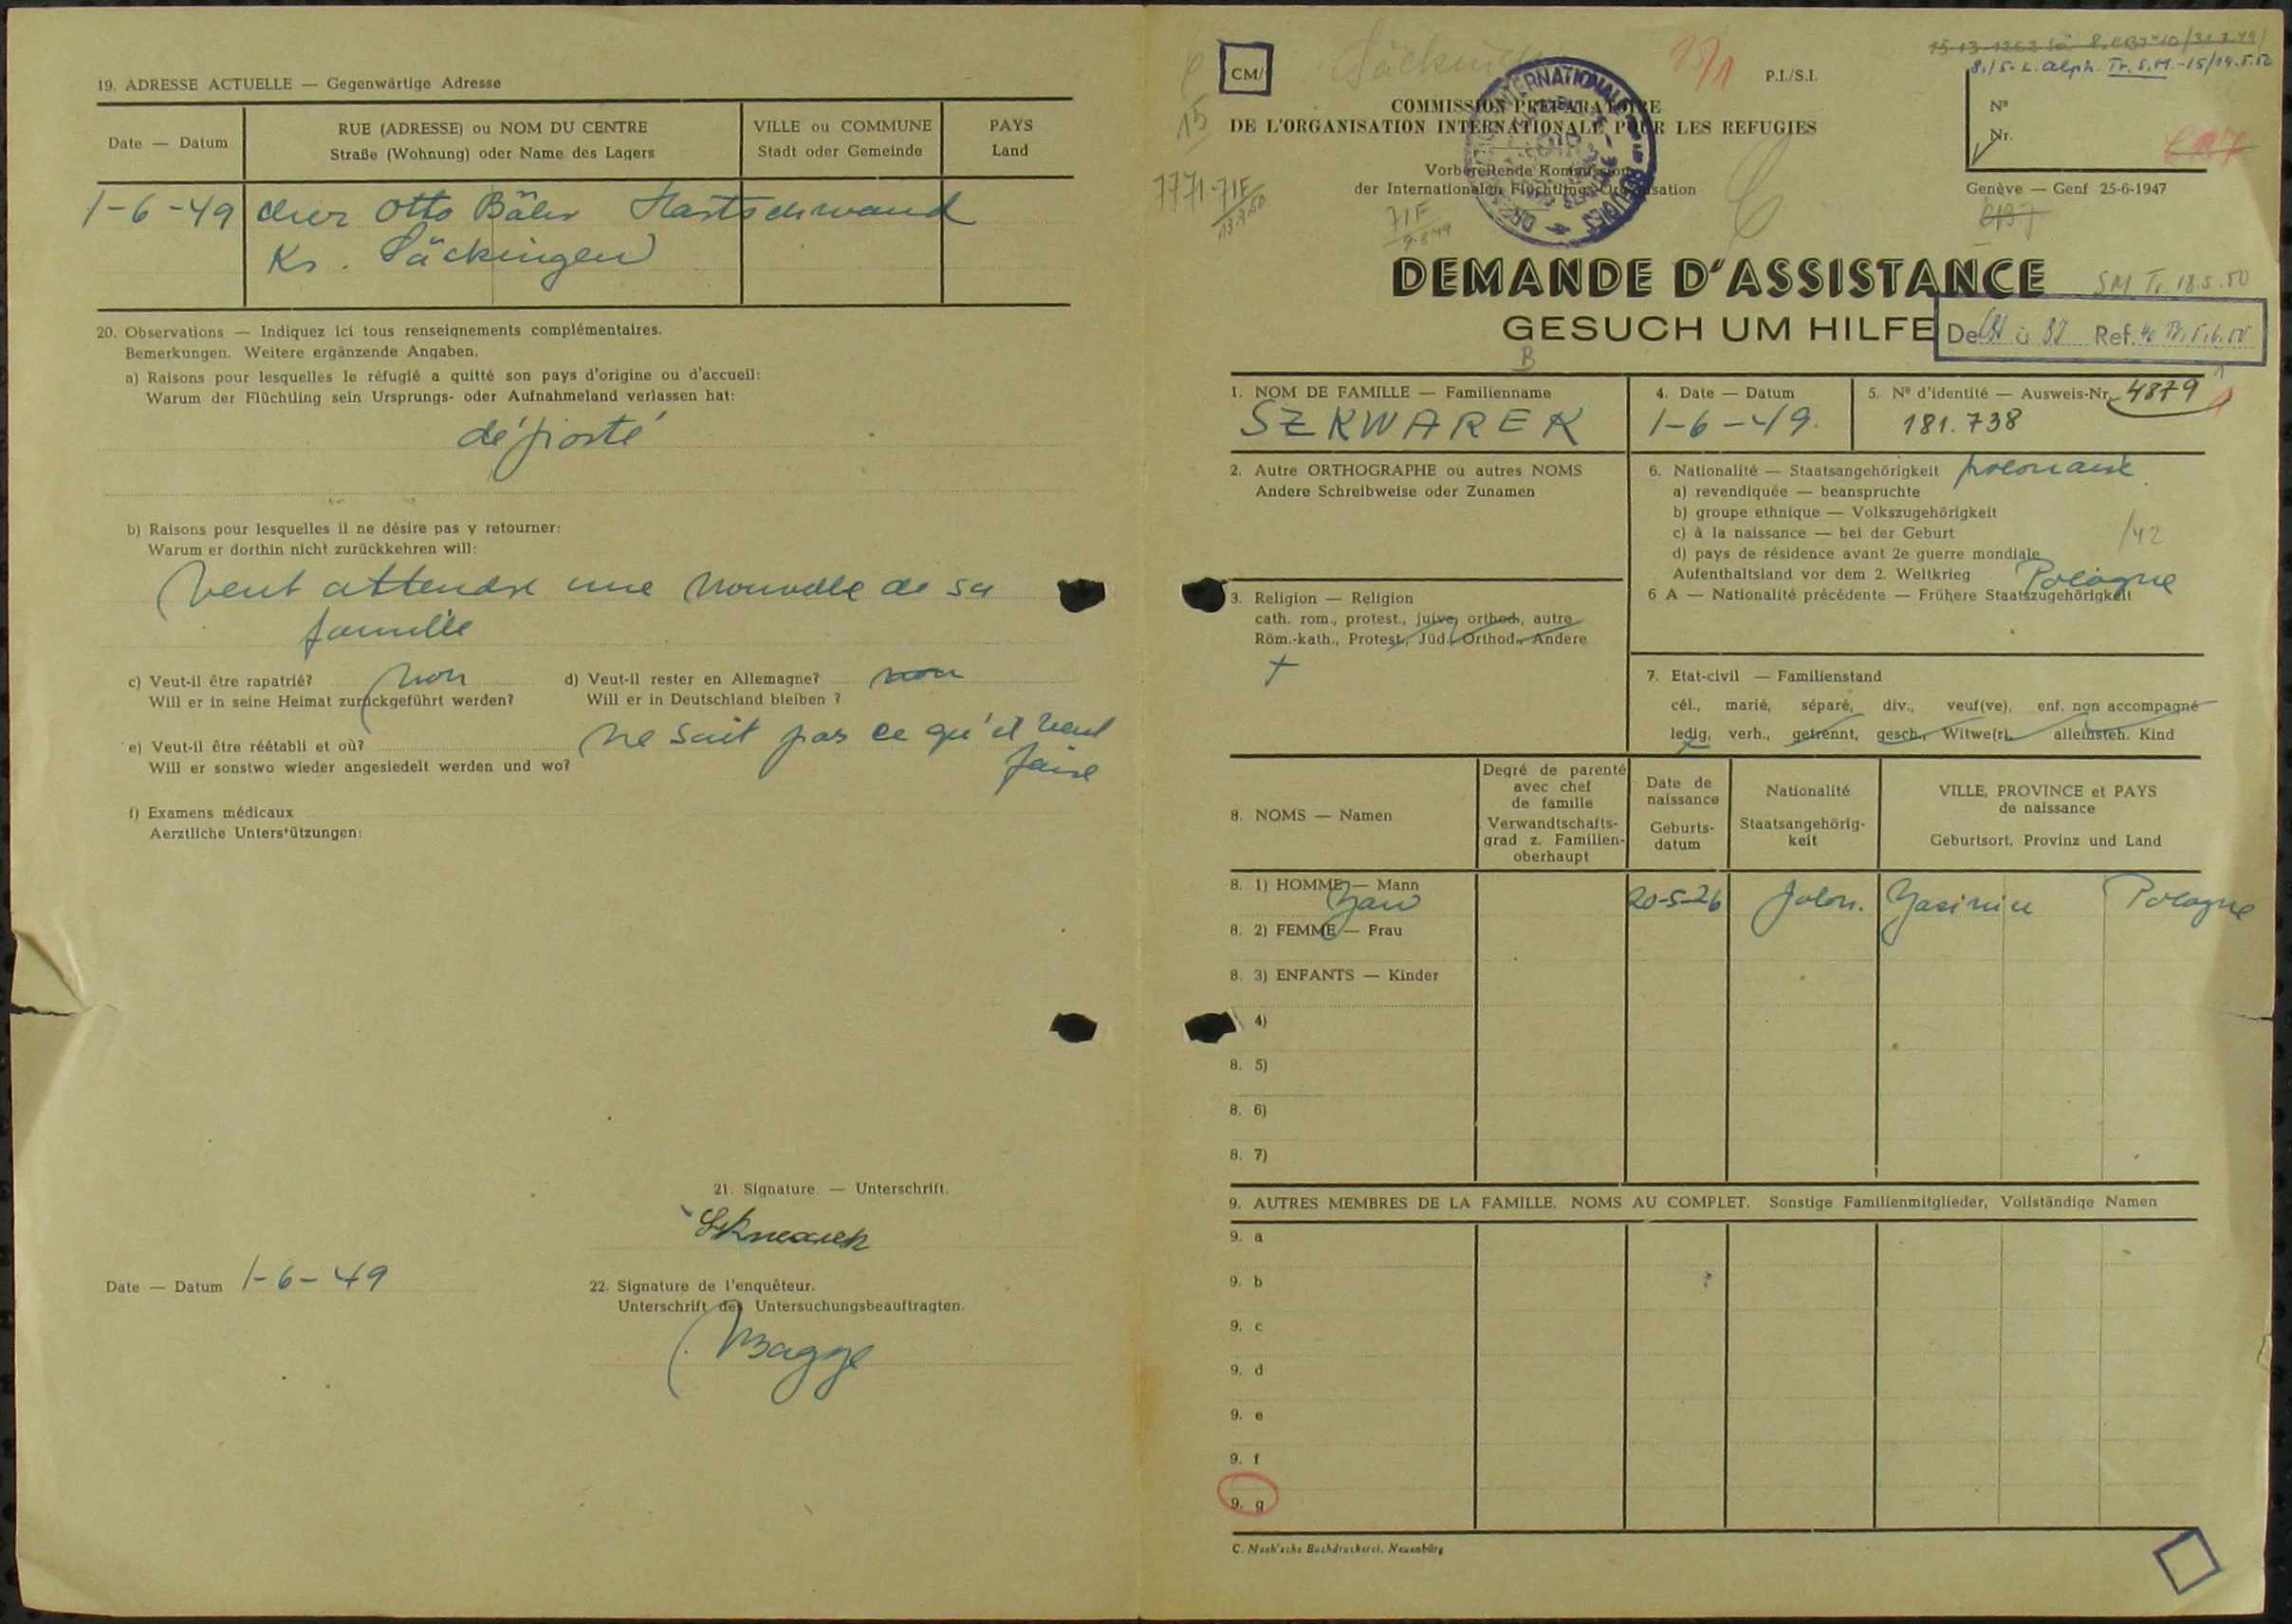 19. ADRESSE ACTUELLE — Gegenwärtige Adresse
Date — Datum
RUE (ADRESSE) ou NOM DU CENTRE
Straße (Wohnung) oder Name des Lagers
VILLE ou COMMUNE
Stadt oder Gemeinde
PAYS
Land
1-6-49 chez Otto Bähr Hartschwand
Kr. Säckingen
20. Observations — Indiquez ici tous renseignements complémentaires.
Bemerkungen. Weitere ergänzende Angaben.
a) Raisons pour lesquelles le réfugié a quitté son pays d'origine ou d'accueil:
Warum der Flüchtling sein Ursprungs- oder Aufnahmeland verlassen hat:
déporté
b) Raisons pour lesquelles il ne désire pas y retourner:
Warum er dorthin nicht zurückkehren will:
Veut attendre une nouvelle de sa
famille
c) Veut-il être rapatrié? non
Will er in seine Heimat zurückgeführt werden?
d) Veut-il rester en Allemagne? non
Will er in Deutschland bleiben ?
e) Veut-il être réétabli et où? ne sait pas ce qu'il veut
faire
Will er sonstwo wieder angesiedelt werden und wo?
f) Examens médicaux
Aerztliche Unters'ützungen:
21. Signature. — Unterschrift.
Szkwarek
Date — Datum 1-6-49
22. Signature de l'enquêteur.
Unterschrift des Untersuchungsbeauftragten.
Bagge
CM/
Säckingen
15/1
P.I./S.I.
8./5. L. alph. Tr. S.M. -15/19.5.50
15
COMMISSION PREPARATOIRE
DE L'ORGANISATION INTERNATIONALE POUR LES REFUGIES
Vorbereitende Kommission
der Internationalen Flüchtlings-Organisation
Nº
Nr.
Genève — Genf 25-6-1947
7771-71F
13.9.50
71F
9.8.49
C137
DEMANDE D'ASSISTANCE
SM Tr. 18.5.50
GESUCH UM HILFE
De Ref.
B
1. NOM DE FAMILLE — Familienname
SZKWAREK
4. Date — Datum
1-6-49.
5. Nº d'identité — Ausweis-Nr. 4879
181.738
2. Autre ORTHOGRAPHE ou autres NOMS
Andere Schreibweise oder Zunamen
6. Nationalité — Staatsangehörigkeit polonaise
a) revendiquée — beanspruchte
b) groupe ethnique — Volkszugehörigkeit
c) à la naissance — bei der Geburt
/42
d) pays de résidence avant 2e guerre mondiale
Aufenthaltsland vor dem 2. Weltkrieg Pologne
6 A — Nationalité précédente — Frühere Staatszugehörigkeit
3. Religion — Religion
cath. rom., protest., juive, orthod., autre
Röm.-kath., Protest., Jüd., Orthod., Andere
7. Etat-civil — Familienstand
cél., marié, séparé, div., veuf(ve), enf. non accompagné
ledig, verh., getrennt, gesch., Witwe(r), alleinsteh. Kind
8. NOMS — Namen
Degré de parenté
avec chef
de famille
Verwandtschafts-
grad z. Familien-
oberhaupt
Date de
naissance
Geburts-
datum
Nationalité
Staatsangehörig-
keit
VILLE, PROVINCE et PAYS
de naissance
Geburtsort, Provinz und Land
8. 1) HOMME — Mann
Jan 20-5-26 polon. Pologne
8. 2) FEMME — Frau
8. 3) ENFANTS — Kinder
4)
8. 5)
8. 6)
8. 7)
9. AUTRES MEMBRES DE LA FAMILLE, NOMS AU COMPLET. Sonstige Familienmitglieder, Vollständige Namen
9. a
9. b
9. c
9. d
9. e
9. f
9. g
C. Meeh'sche Buchdruckerei, Neuenbürg